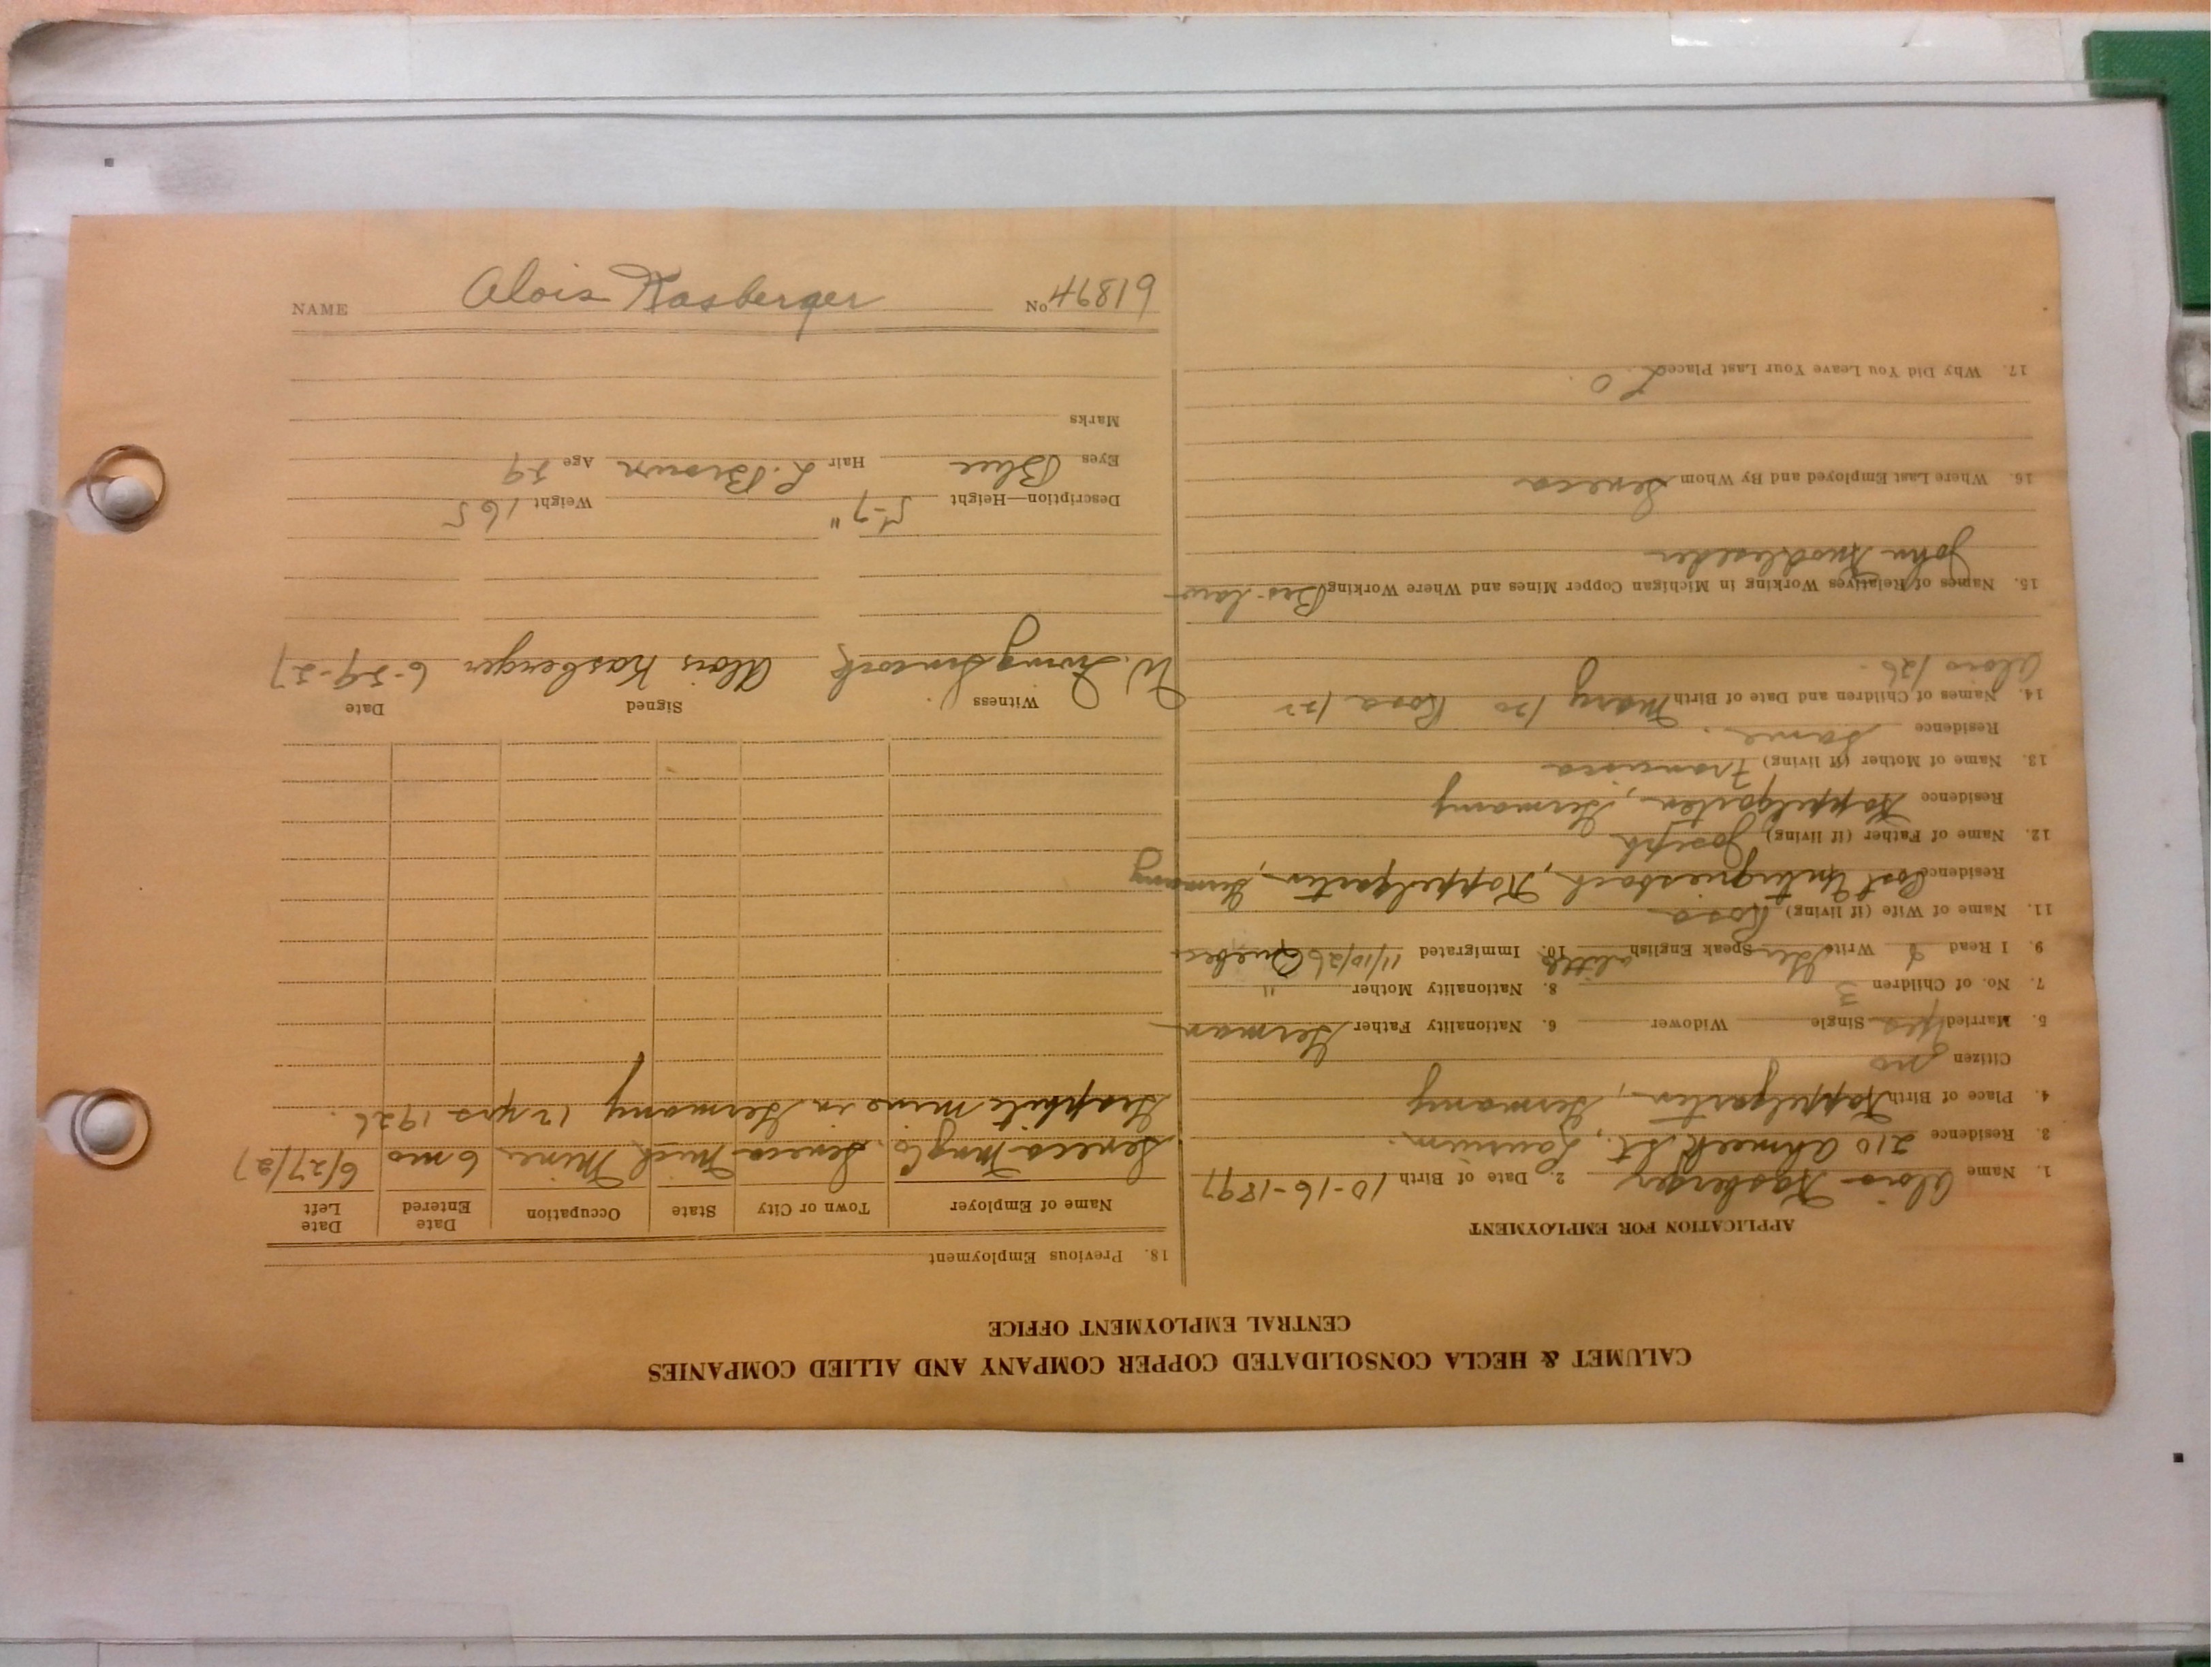 CALUMET & HECLA CONSOLIDATED COPPER COMPANY AND ALLIED COMPANIES
CENTRAL EMPLOYMENT OFFICE
APPLICATION FOR EMPLOYMENT
1. Name Alois Kasberger 2. Date of Birth 10-16-1897
3. Residence 210 Ahmeek St., Laurium.
4. Place of Birth Kappelgarten, Germany
Citizen no
5. Married Yes Single Widower 6. Nationality Father German
7. No. of Children 3 8. Nationality Mother "
9. I Read & Write Ger Speak English a little 10. Immigrated 11/10/26 Quebec
11. Name of Wife (if living) Rosa
Residence Post Kappelgarten, Germany
12. Name of Father (if living) Joseph
Residence Kappelgarten, Germany
13. Name of Mother (if living) Francisca
Residence Same.
14. Names of Children and Date of Birth Mary /20 Rosa /22
Alois /26.
15. Names of Relatives Working in Michigan Copper Mines and Where Working Bro-law
John
16. Where Last Employed and By Whom Seneca
17. Why Did You Leave Your Last Place L O.
18. Previous Employment
Name of Employer Town or City State Occupation Date Entered Date Left
Seneca Mng Co. Seneca Mich Miner 6 mo 6/27/27
Graphite mine in Germany 12 yrs 1926.
Witness Signed Date
W. Alois Kasberger 6-29-27
Description—Height 5-7" Weight 165
Eyes Blue Hair L. Brown Age 29
Marks
NAME Alois Kasberger No 46819